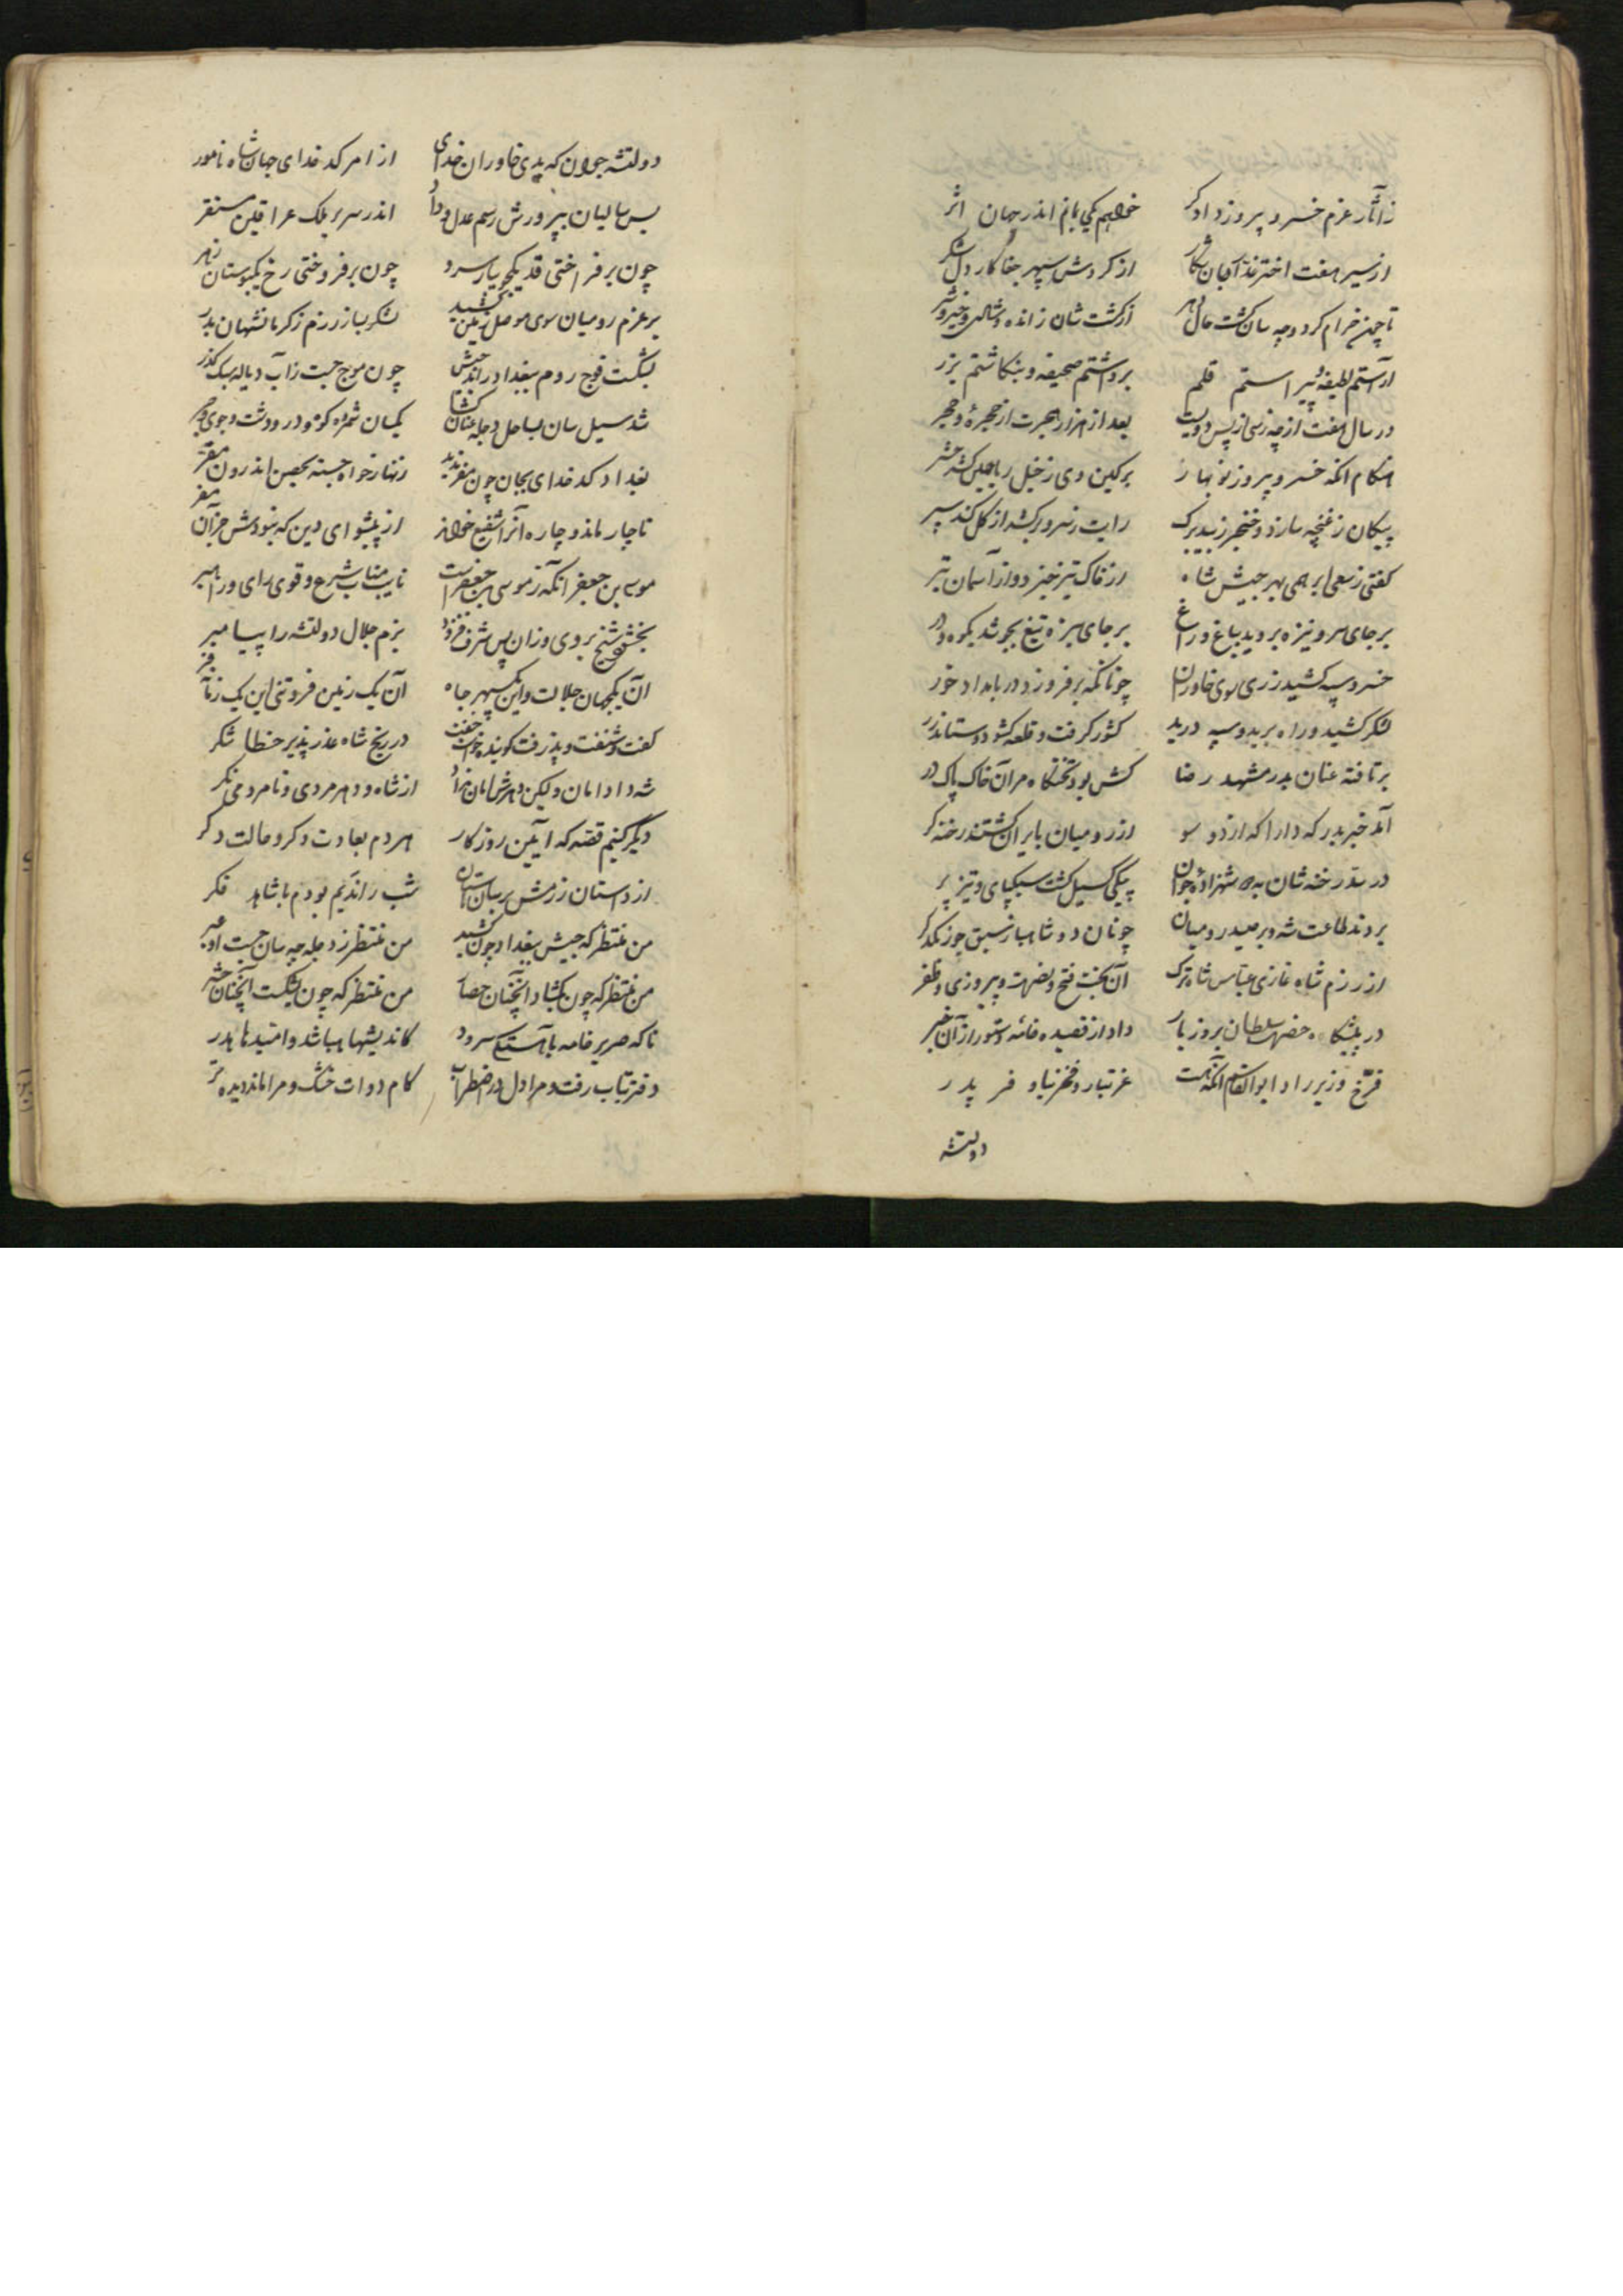 ز آثار عزم خسرو پیروز دادگر خواهم یکی بمانم اندر جهان اثر
از سیر هفت اختر نه آسمان از گردش سپهر جفاکار دل شکر
تا چون خرام کرد و چه سان گشت حال دهر از گشت شان زاده و شاهی و خیر و شر
آراستم لطیفه و پیراستم قلم برداشتم صحیفه و بنگاشتم بزر
در سال هفت از چه زسی از پس دویست بعد از هزار هجرت از حجره و حجر
هنگام آنکه خسرو پیروز نوبهار بر کین دی ز خیل ریاحین کشد حشر
پیکان ز غنچه سازد و خنجر ز بید برگ رایت ز سرو برکشد از گل کند سپر
گفتی زمین ابر همی بهر جیش شاه از خاک تیر خیزد و از آسمان تبر
بر جای سرو نیزه بروید بباغ و راغ بر جای سبزه تیغ بجوشد بکوه و در
خسرو سپه کشید ز ری سوی خاوران چونانکه برفروزد در بامداد خور
لشکر کشید و راه برید و سپه درید کشور گرفت و قلعه گشود و ستاند زر
برتافته عنان بدر مشهد رضا کش بود تختگاه مر آن خاک پاک در
آمد خبر بدرگه دارا که از دو سو از رومیان بایران گشتند رخنه گر
در سد رخنه شان به دو شهزاده جوان پیکی گسیل گشت سبکپای و تیز پر
بردند طاعت شه و بر صید رومیان چونان دو شاهباز سبق جو ز یکدگر
از رزم شاه غازی عباس شاه ترک آن بخت فتح و نصرت و پیروزی و ظفر
در پیشگاه حضرت سلطان بروز بار داد از قصیده خامه دستور از آن خبر
فرخ وزیر راد ابوالقاسم آنکه هست عز تبار و فخر نیا و فر پدر
دولتشه
دولتشه جوان که بدی خاوران خدای از امر کدخدای جهان شاه نامور
بس سالیان بپرورش رسم عدل و داد اندر سریر ملک عراقین مستقر
چون برفراختی قد یکجویبار سرو چون برفروختی رخ یکبوستان زهر
بر عزم رومیان سوی موصل زمین کشید لشکر بساز رزم ز کرمانشهان بدر
بشکست فوج روم ببغداد راند جیش چون موج جست ز آب دیاله سبک گذر
شد سیل سان بساحل دجله عنان گشا یکسان شمرده کوه و در و دشت و جوی و جر
بغداد کدخدای بجان چون مفر ندید زنهار خواه جسته بحصن اندرون مقر
ناچار ماند و چاره آنرا شفیع خواند از پیشوای دین که نبودش جز آن مفر
موسی بن جعفر آنکه ز موسی بن جعفر است نایب مناب شرع و قوی رای و راهبر
بخشود شیخ بر وی و زان پس شرف فزود بزم جلال دولتشه را پیامبر
آن یکجهان جلالت و این یکسپهر جاه آن یک زمین فروتنی این یک زمانه فر
گفت و شنفت و پذرفت گوینده جواب در رنج شاه عذرپذیر خطا شکر
شه داد امان ولیکن دهرش امان نداد از شاه و دهر مردی و نامردمی نگر
دیگر کنیم قصه که آیین روزگار هر دم بعادت دگر و حالت دگر
از داستان رزمش بر باستان شب راندیم بودم با شاهد فکر
من منتظر که جیش ببغداد چون کشید من منتظر ز دجله چه سان جست او عبر
من منتظر که چون بگشاد آنچنان حصار من منتظر که چون بشکست آنچنان حشر
ناگه صریر خامه بآهستگی سرود کاندیشها هبا شد و امیدها هدر
دفتر بتاب رفت و مرا دل در اضطراب کام دوات خشک و مرا ماند دیده تر